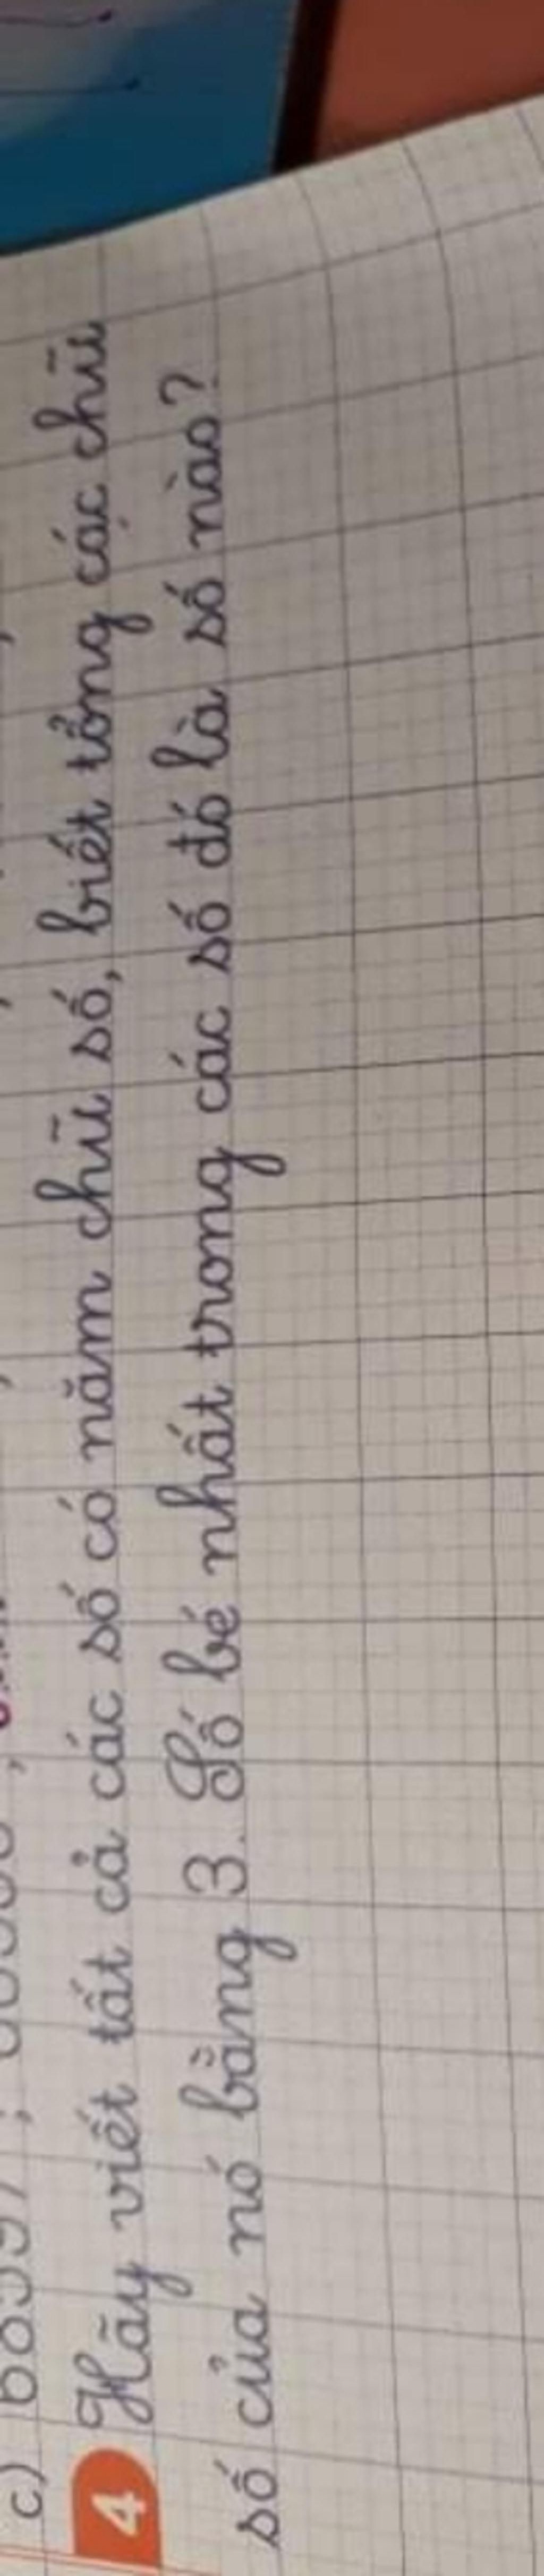 c)
4 Hãy viết tất cả các số có năm chữ số, biết tổng các chữ
số của nó bằng 3. Số bé nhất trong các số đó là số nào?